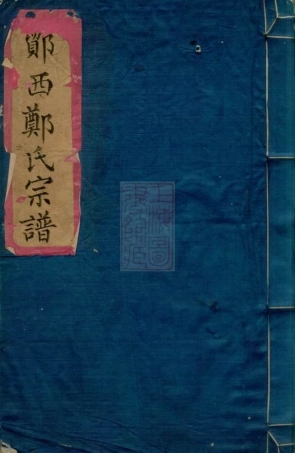 鄖西鄭氏宗譜